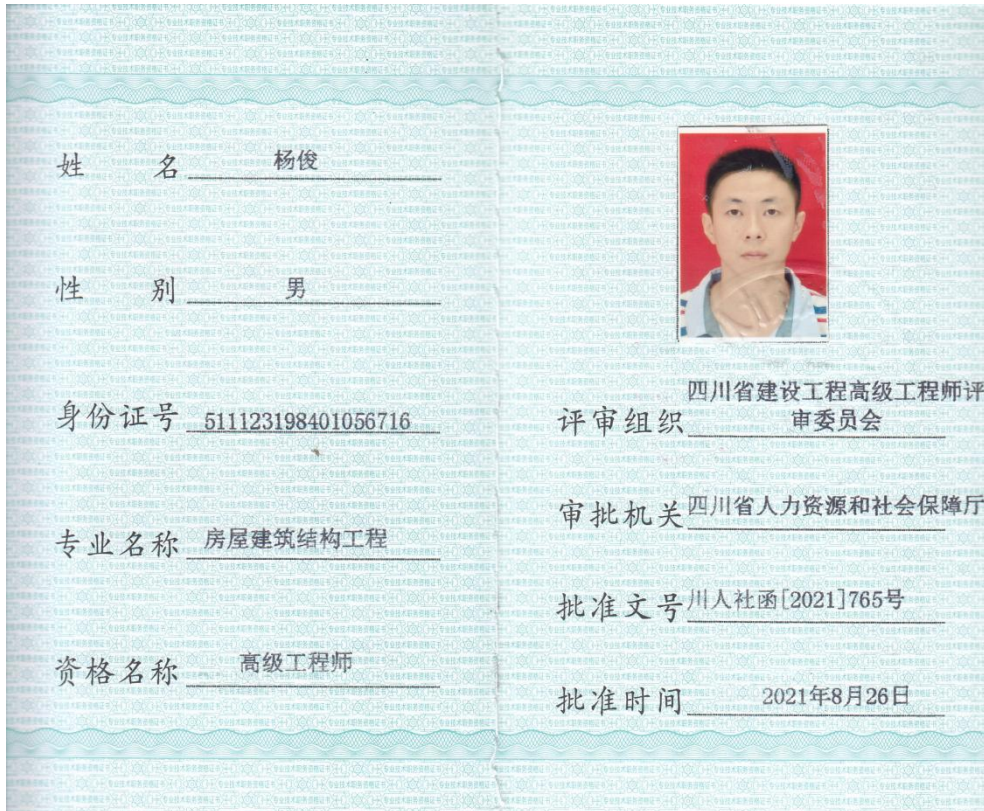 姓名 杨俊
性别 男
身份证号 511123198401056716
专业名称 房屋建筑结构工程
资格名称 高级工程师
评审组织 四川省建设工程高级工程师评
审委员会
审批机关 四川省人力资源和社会保障厅
批准文号 川人社函[2021]765号
批准时间 2021年8月26日